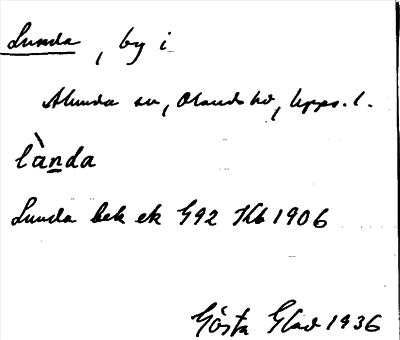 Lunda, by i
Alunda sn, Olands hd, Upps. l.
lànda
Lunda bek ek G92 Hb 1906
Gösta Glad 1936